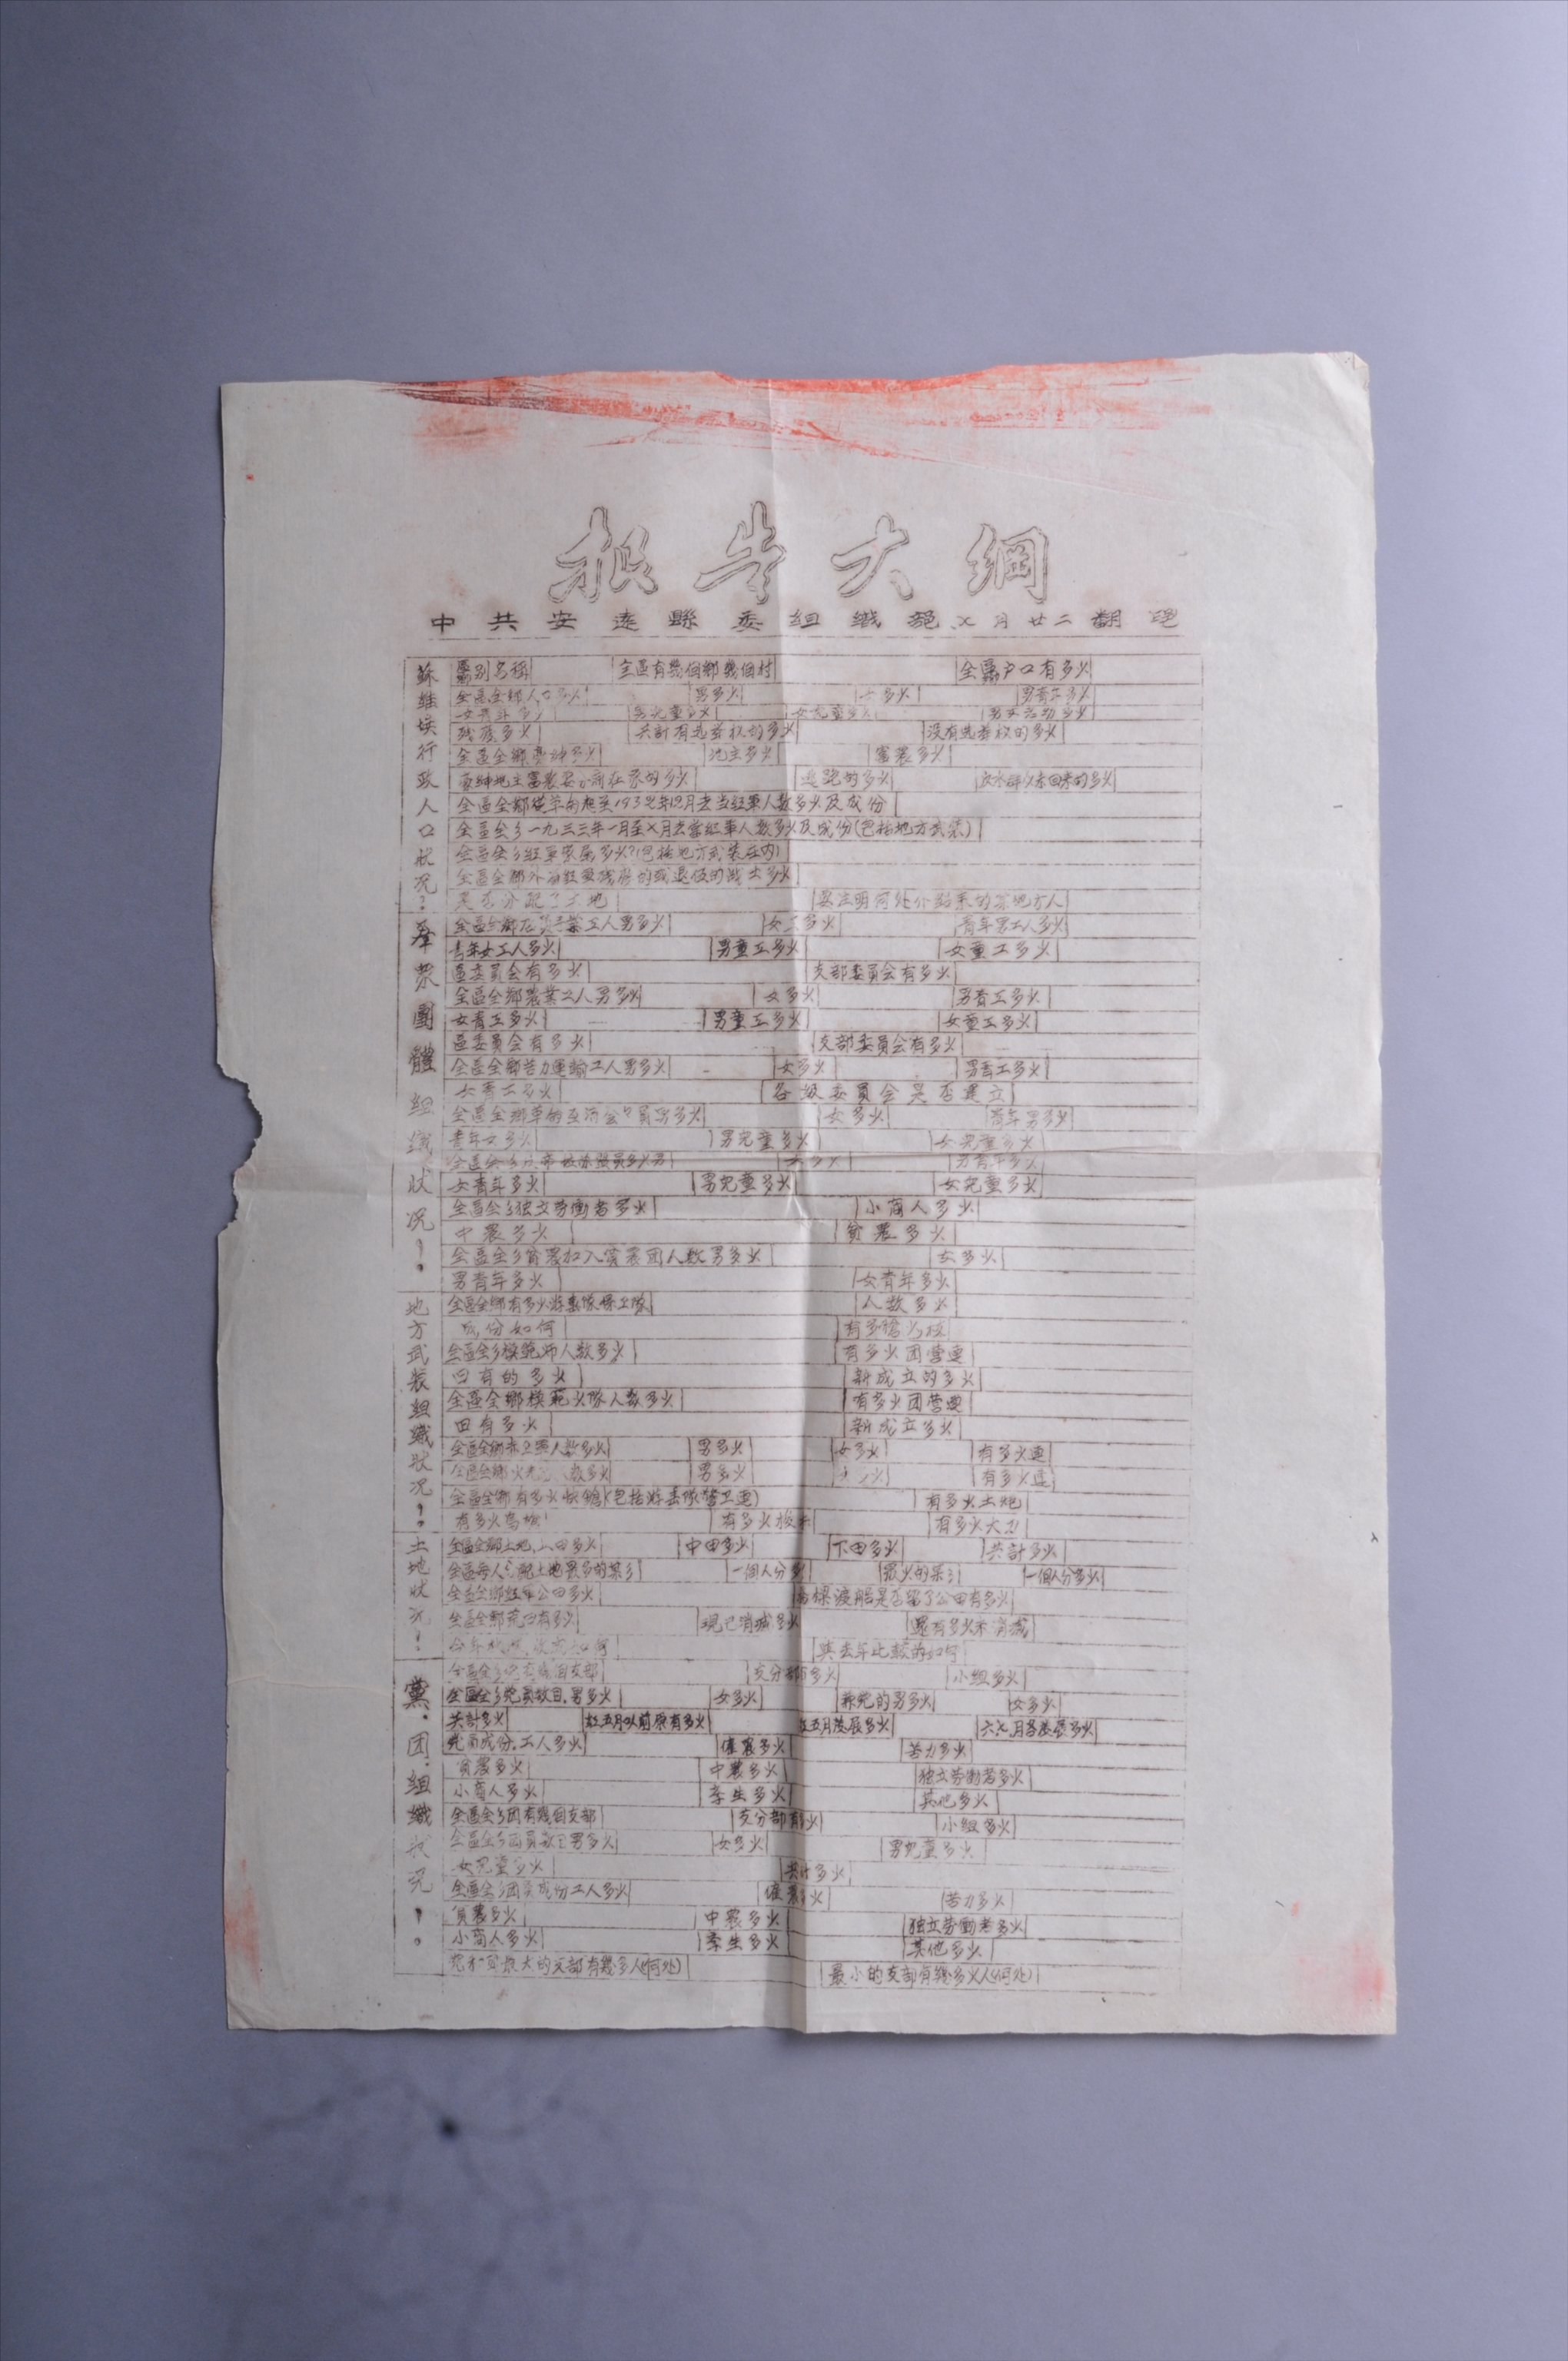 报告大綱
中共安遠縣委組織 月廿二翻
蘇維埃行政人口狀况?
區别名稱 全區有幾個鄉幾個村 全區户口有多少
全區全鄉人口多少 男多少 女多少 男青年多少
女青年多少 男兒童多少 女兒童多少
残废多少 共計有选举权的多少 没有选举权的多少
全區全鄉豪紳多少 地主多少 富農多少
豪紳地主富農 前在家的多少 逃跑的多少 回来的多少
1932年12月去当红軍人数多少及成份
全區全乡一九三三年一月至 月去當红軍人数多少及成份(包括地方武装)
全區全乡红軍家屬多少?(包括地方武装在内)
全區全鄉外 红軍残废的或退伍的战士多少
是否分配了土地 要注明何处介紹来的某地方人
羣眾團體組織狀况?
全區全鄉 工人男多少 女工多少 青年男工人多少
青年女工人多少 男童工多少 女童工多少
區委員会有多少 支部委員会有多少
全區全鄉農業工人男多少 女多少 男青工多少
女青工多少 男童工多少 女童工多少
區委員会有多少 支部委員会有多少
全區全鄉苦力運輸工人男多少 女多少 男青工多少
女青工多少 各級委員会是否建立
全區全鄉 員男多少 女多少 青年男多少
青年女多少 男兒童多少 女兒童多少
全區全乡 員多少男 女多少 男青年多少
女青年多少 男兒童多少 女兒童多少
全區全乡独立劳働者多少 小商人多少
中農多少 貧農多少
全區全乡貧農加入貧農团人数男多少 女多少
男青年多少 女青年多少
地方武装組織狀况?
全區全鄉有多少游擊隊保卫隊 人数多少
成份如何 有多少枪
全區全乡模範师人数多少 有多少团营連
旧有的多少 新成立的多少
全區全鄉模範少隊人数多少 有多少团营連
旧有多少 新成立多少
全區全鄉赤卫軍人数多少 男多少 女多少 有多少連
全區全鄉少先 数多少 男多少 有多少連
全區全鄉有多少快鎗(包括游击隊警卫連) 有多少土炮
有多少鸟枪 有多少梭标 有多少大刀
土地狀况!
全區全鄉土地,上田多少 中田多少 下田多少 共計多少
全區每人分配土地最多的某乡 一個人分多少 最少的某乡 一個人分多少
全區全鄉红軍公田多少 桥樑渡船是否留了公田有多少
全區全鄉荒田有多少 現已消滅多少 還有多少未消滅
今年 如何 與去年比較的如何
黨·团·組織狀况?
全區全乡 有幾個支部 支分部多少 小組多少
全區全乡党員数目,男多少 女多少 男多少 女多少
共計多少 红五月以前原有多少 红五月發展多少 六七月各發展多少
党的成份,工人多少 僱農多少 苦力多少
貧農多少 中農多少 独立劳働者多少
小商人多少 学生多少 其他多少
全區全乡团有幾個支部 支分部有多少 小組多少
全區全乡团員数目男多少 女多少 男兒童多少
女兒童多少 共計多少
全區全乡团員成份工人多少 僱農多少 苦力多少
貧農多少 中農多少 独立劳働者多少
小商人多少 学生多少 其他多少
最大的支部有幾多人(何处) 最小的支部有幾多少人(何处)